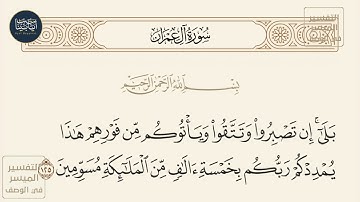 سُورَةُ آلِ عِمْرَان
بِسْمِ اللَّهِ الرَّحْمَٰنِ الرَّحِيمِ
بَلَىٰٓ ۚ إِن تَصْبِرُوا۟ وَتَتَّقُوا۟ وَيَأْتُوكُم مِّن فَوْرِهِمْ هَٰذَا
يُمْدِدْكُمْ رَبُّكُم بِخَمْسَةِ ءَالَٰفٍ مِّنَ ٱلْمَلَٰٓئِكَةِ مُسَوِّمِينَ
١٢٥
التفسير
الميسر
في الوصف
التفسير
الميسر